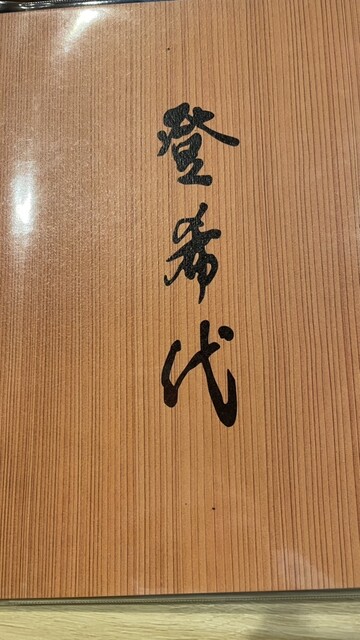 登希代